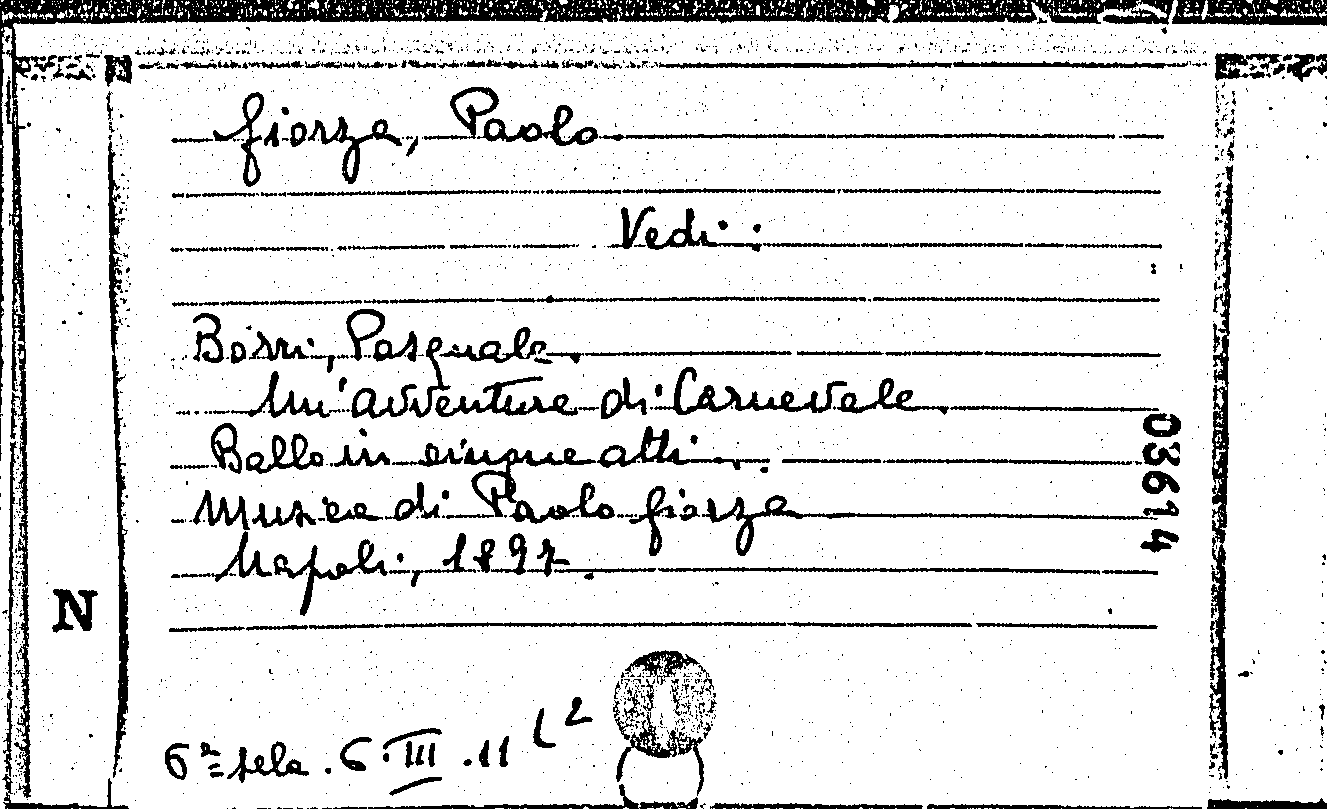 Giorza, Paolo.
Vedi:
Borri, Pasquale.
Un'avventura di Carnevale.
Ballo in cinque atti...
Musica di Paolo Giorza
Napoli, 1897.
03614
N
6ª sala . 6 . III . 11 L²